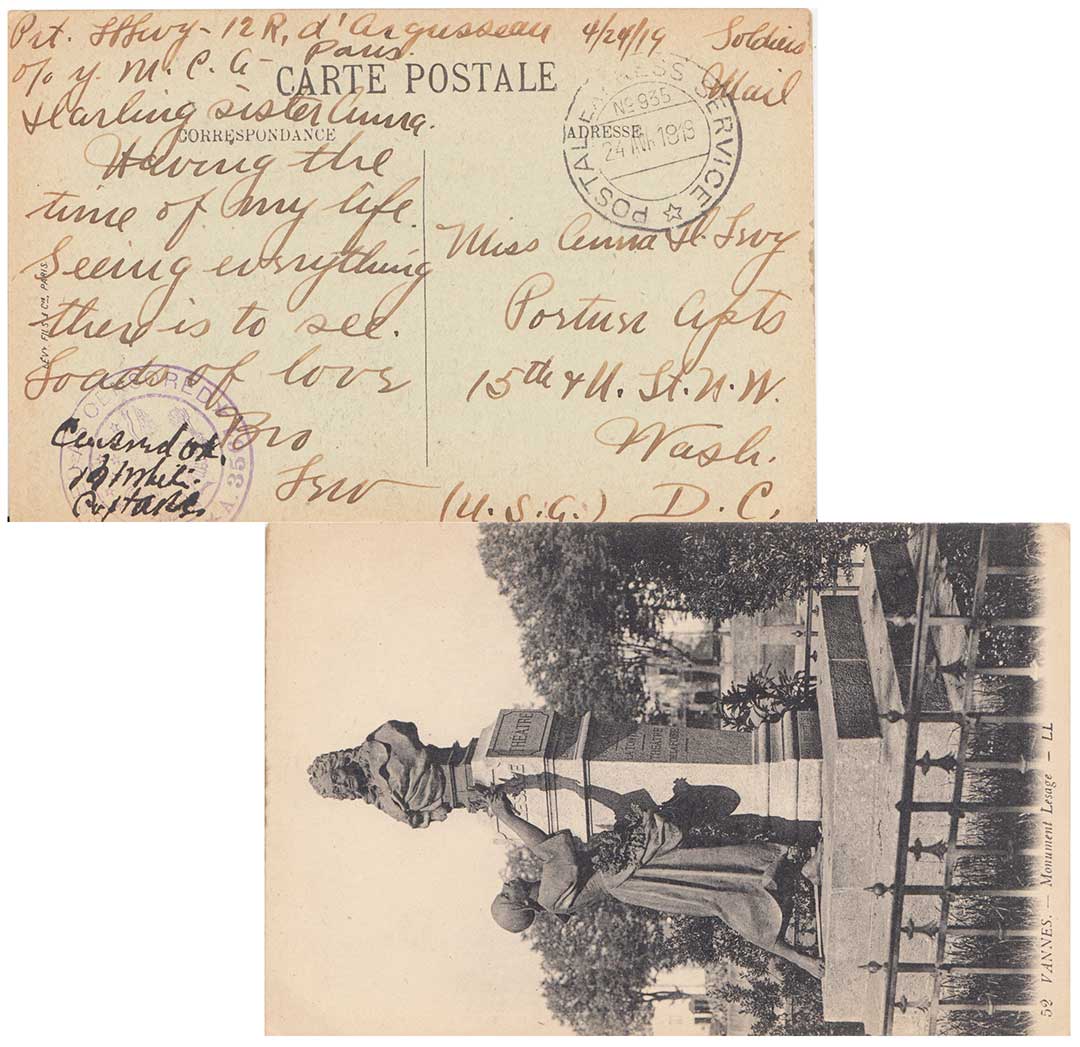 Pvt. Levy - 12 R, d'Argusseau 4/24/19 Soldiers
c/o Y. M. C. A - Paris. Mail
CARTE POSTALE
Darling sister Anna.
CORRESPONDANCE
ADRESSE
POSTAL EXPRESS SERVICE
No 935
24 AVR 1919
Having the
time of my life.
Seeing everything
there is to see.
Loads of love
Bro
Lew
Miss Anna H. Levy
Portner Apts
15th & U. St. N. W.
Wash.
(U. S. A.) D. C.
LÉVY FILS & Co. PARIS
CENSORED
A. 35
Censored OK.
THEATRE
THEATRE
52 VANNES. — Monument Lesage — LL